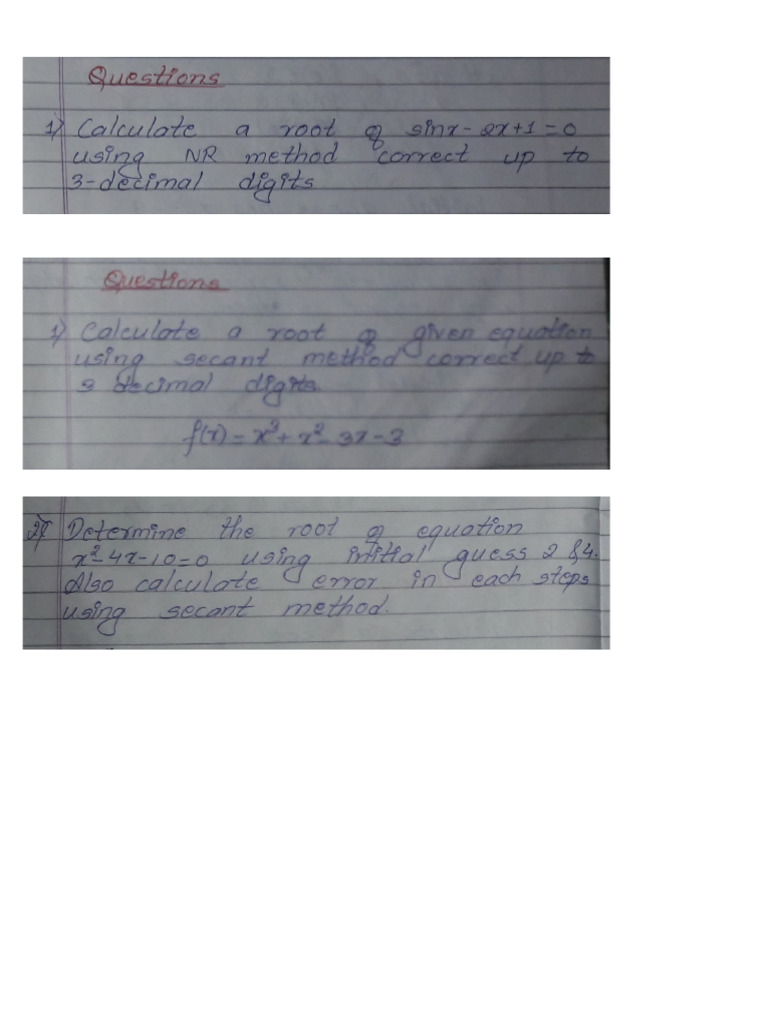 Questions
1) Calculate a root of sinx - 2x+1=0
using NR method correct up to
3-decimal digits
Questions
1) Calculate a root of given equation
using secant method correct up to
3 decimal digits.
f(x) = x³ + x² - 3x - 3
2) Determine the root of equation
x² - 4x - 10 = 0 using initial guess 2 & 4.
Also calculate error in each steps
using secant method.